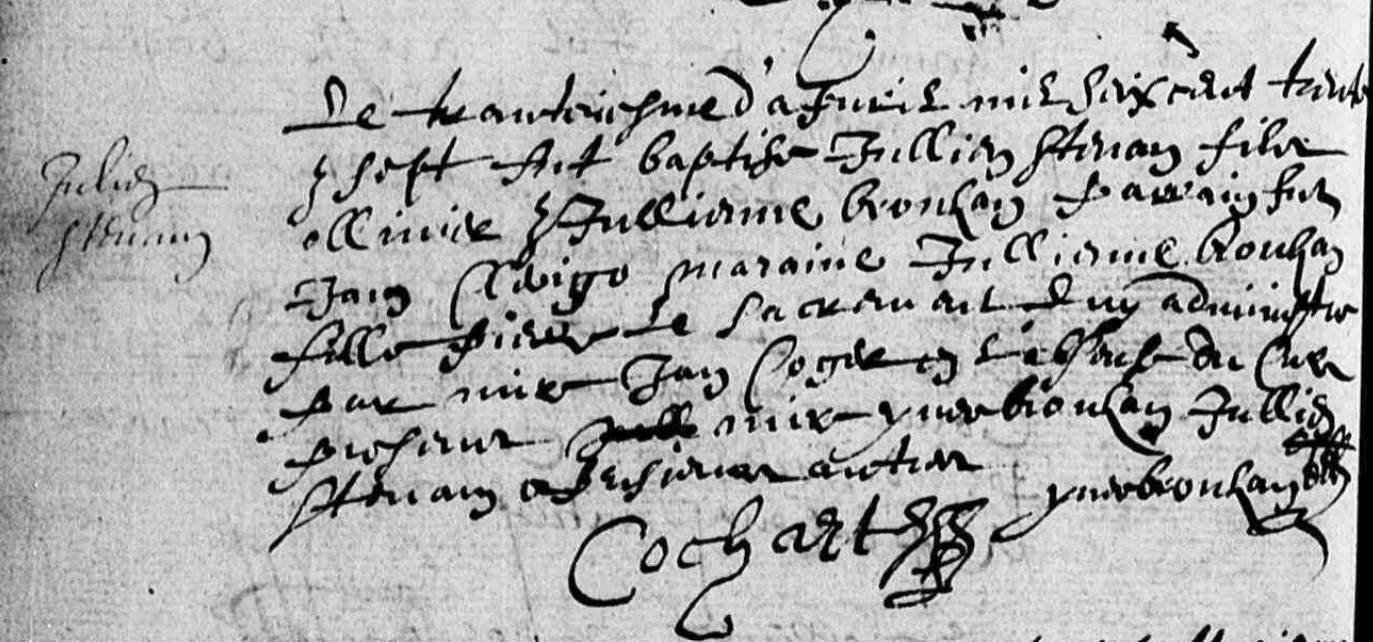 Julien
Stevan
Le trantriesme d'apvril mil seix cent trante
& sept fut baptisé Jullien Stevan filx
ollivier & Jullienne brouhan parrain fut
Jan maraine Jullienne brouhan
fille pierre le sacrement luy administre
par mire Jan en du
presant mire yves brouhan Jullien
Stevan & plusieurs autres
yves brouhan
Cochart